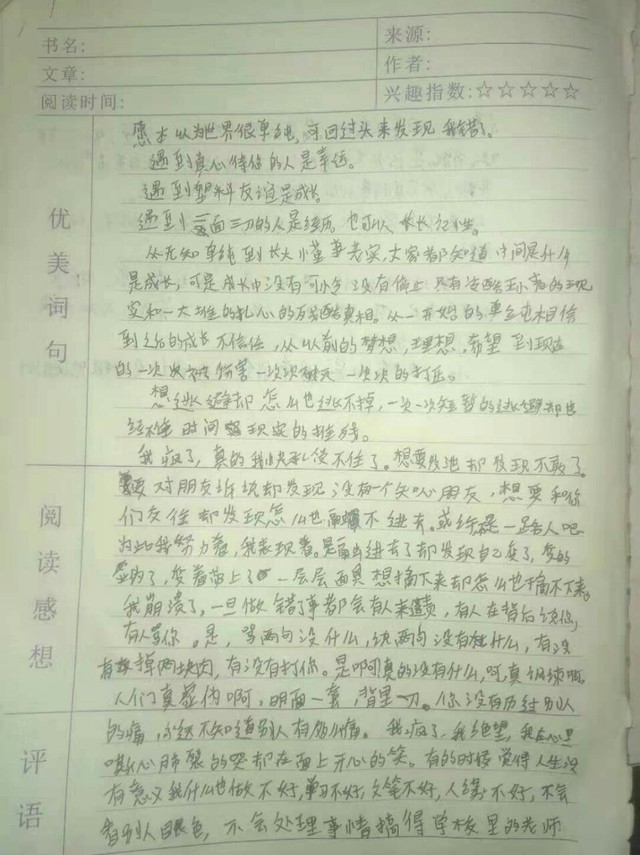 书名:
来源:
文章:
作者:
阅读时间:
兴趣指数:☆☆☆☆☆
优美词句
愿本以为世界很单纯,可回过头来发现我错了。
遇到真心待你的人是幸运。
遇到塑料友谊是成长。
遇到三面三刀的人是经历,也可以长长记性。
从无知单纯到长大懂事老实,大家都知道中间是什么
是成长,可是成长中没有可 没有 只有 的现
实和一大堆的扎心的 真相。从一开始的单纯相信
到之后的成长不信任,从以前的梦想,理想,希望到现在
的一次次被伤害一次次 一次次的打压。
想逃避却怎么也逃不掉,一次一次短暂的逃避却也
经不住时间 现实的推残。
阅读感想
我疯了,真的我快承受不住了。想要发泄却发现不敢了。
对朋友诉说却发现没有一个知心朋友,想要和你
们交往却发现怎么也 不进去。或许是一路人吧
为此我努力着,我表现着。是 进去了却发现自己变了,变的
了,变着带上了 一层层面具想摘下来却怎么也摘不下来。
我崩溃了,一旦做错了事都会有人来 ,有人在背后说你,
有人骂你。是,骂两句没什么,说两句没有什么,有没
有 掉两块肉,有没有打你。是啊真的没有什么,呵,真 。
人们真虚伪啊,明面一套,背里一刀。你没有历过别人
的痛,永远不知道别人有多么痛。我疯了,我绝望,我在心里
嘶心肺裂的哭却在面上开心的笑。有的时候觉得人生没
评语
有意义我什么也做不好, 不好,文笔不好,人缘不好,不会
看别人眼色,不会处理事情搞得学校里的老师